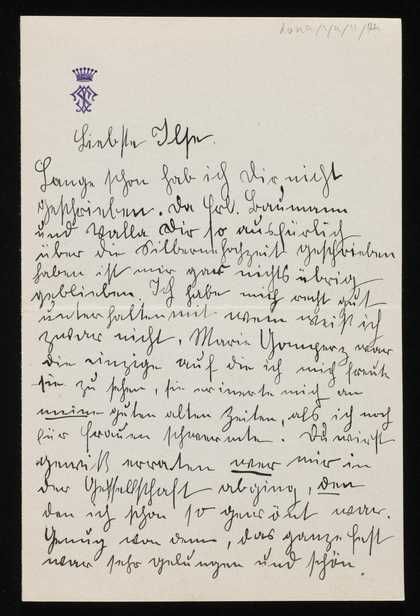 Liebste Ilse.
Lange schon hab ich Dir nicht
geschrieben. Da Frl. Baumann
und Valla Dir so ausfürlich
über die Silbernhochzeit geschrieben
haben ist mir gar nichts übrig
geblieben. Ich habe mich recht gut
unterhalten mit wem weiß ich
zwar nicht, Marie Gomperz war
die einzige auf die ich mich freute
sie zu sehen, sie erinerte mich an
meine guten alten Zeiten, als ich noch
für Frauen schwermte. Du wirst
gewiß erraten wer mir in
der Geßellschaft abging, den
den ich schon so gewönt war.
Genug von dem, das ganze Fest
war sehr gelungen und schön.